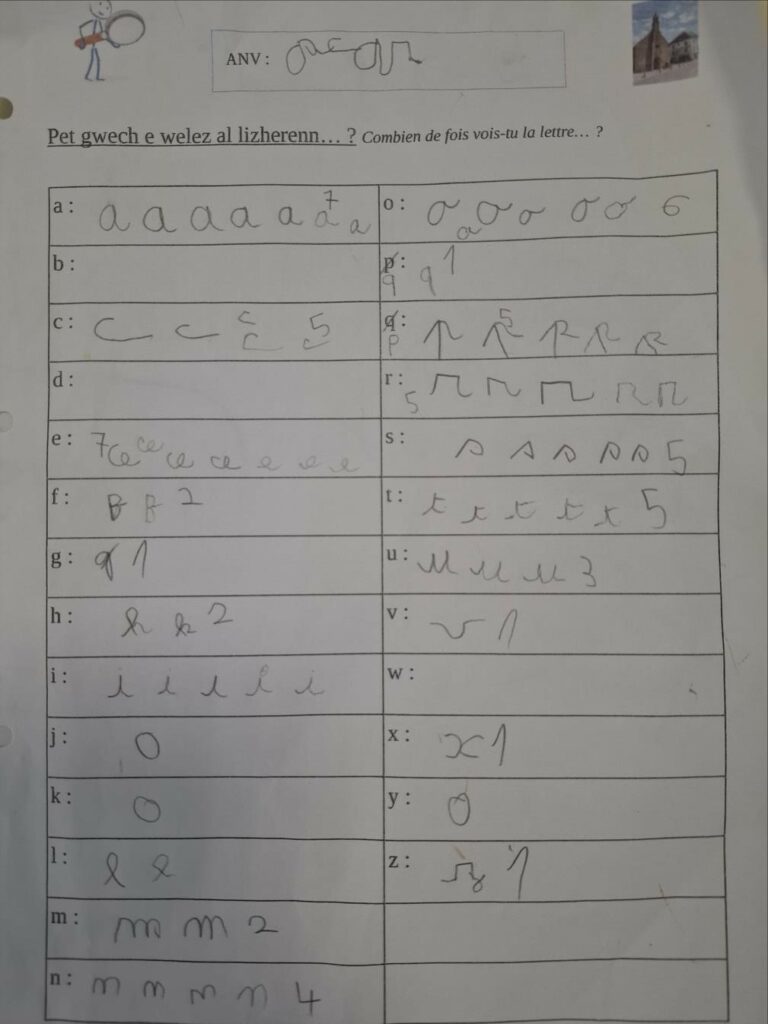 ANV :
Pet gwech e welez al lizherenn… ? Combien de fois vois-tu la lettre… ?
a : a a a a a a a 7
b :
c : c c c c c 5
d :
e : 7 e e e e e e e
f : f f 2
g : g 1
h : h h 2
i : i i i i i
j : 0
k : 0
l : l l
m : m m 2
n : n n n n 4
o : o o o o o o 6
p : q q 1
q : p p p p p p 5
r : 5 r r r r r
s : s s s s s 5
t : t t t t t 5
u : u u u 3
v : v 1
w :
x : x 1
y : 0
z : z 1